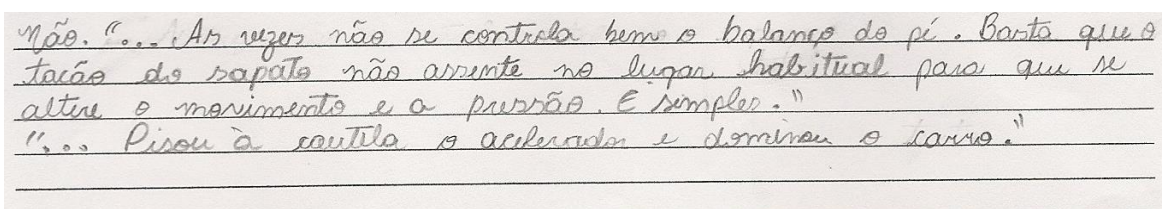 Não. "... As vezes não se controla bem o balanço do pé. Basta que o
tacão do sapato não assente no lugar habitual para que se
altere o movimento e a pressão. E simples."
"... Pisou à cautila o acelerador e dominou o carro."